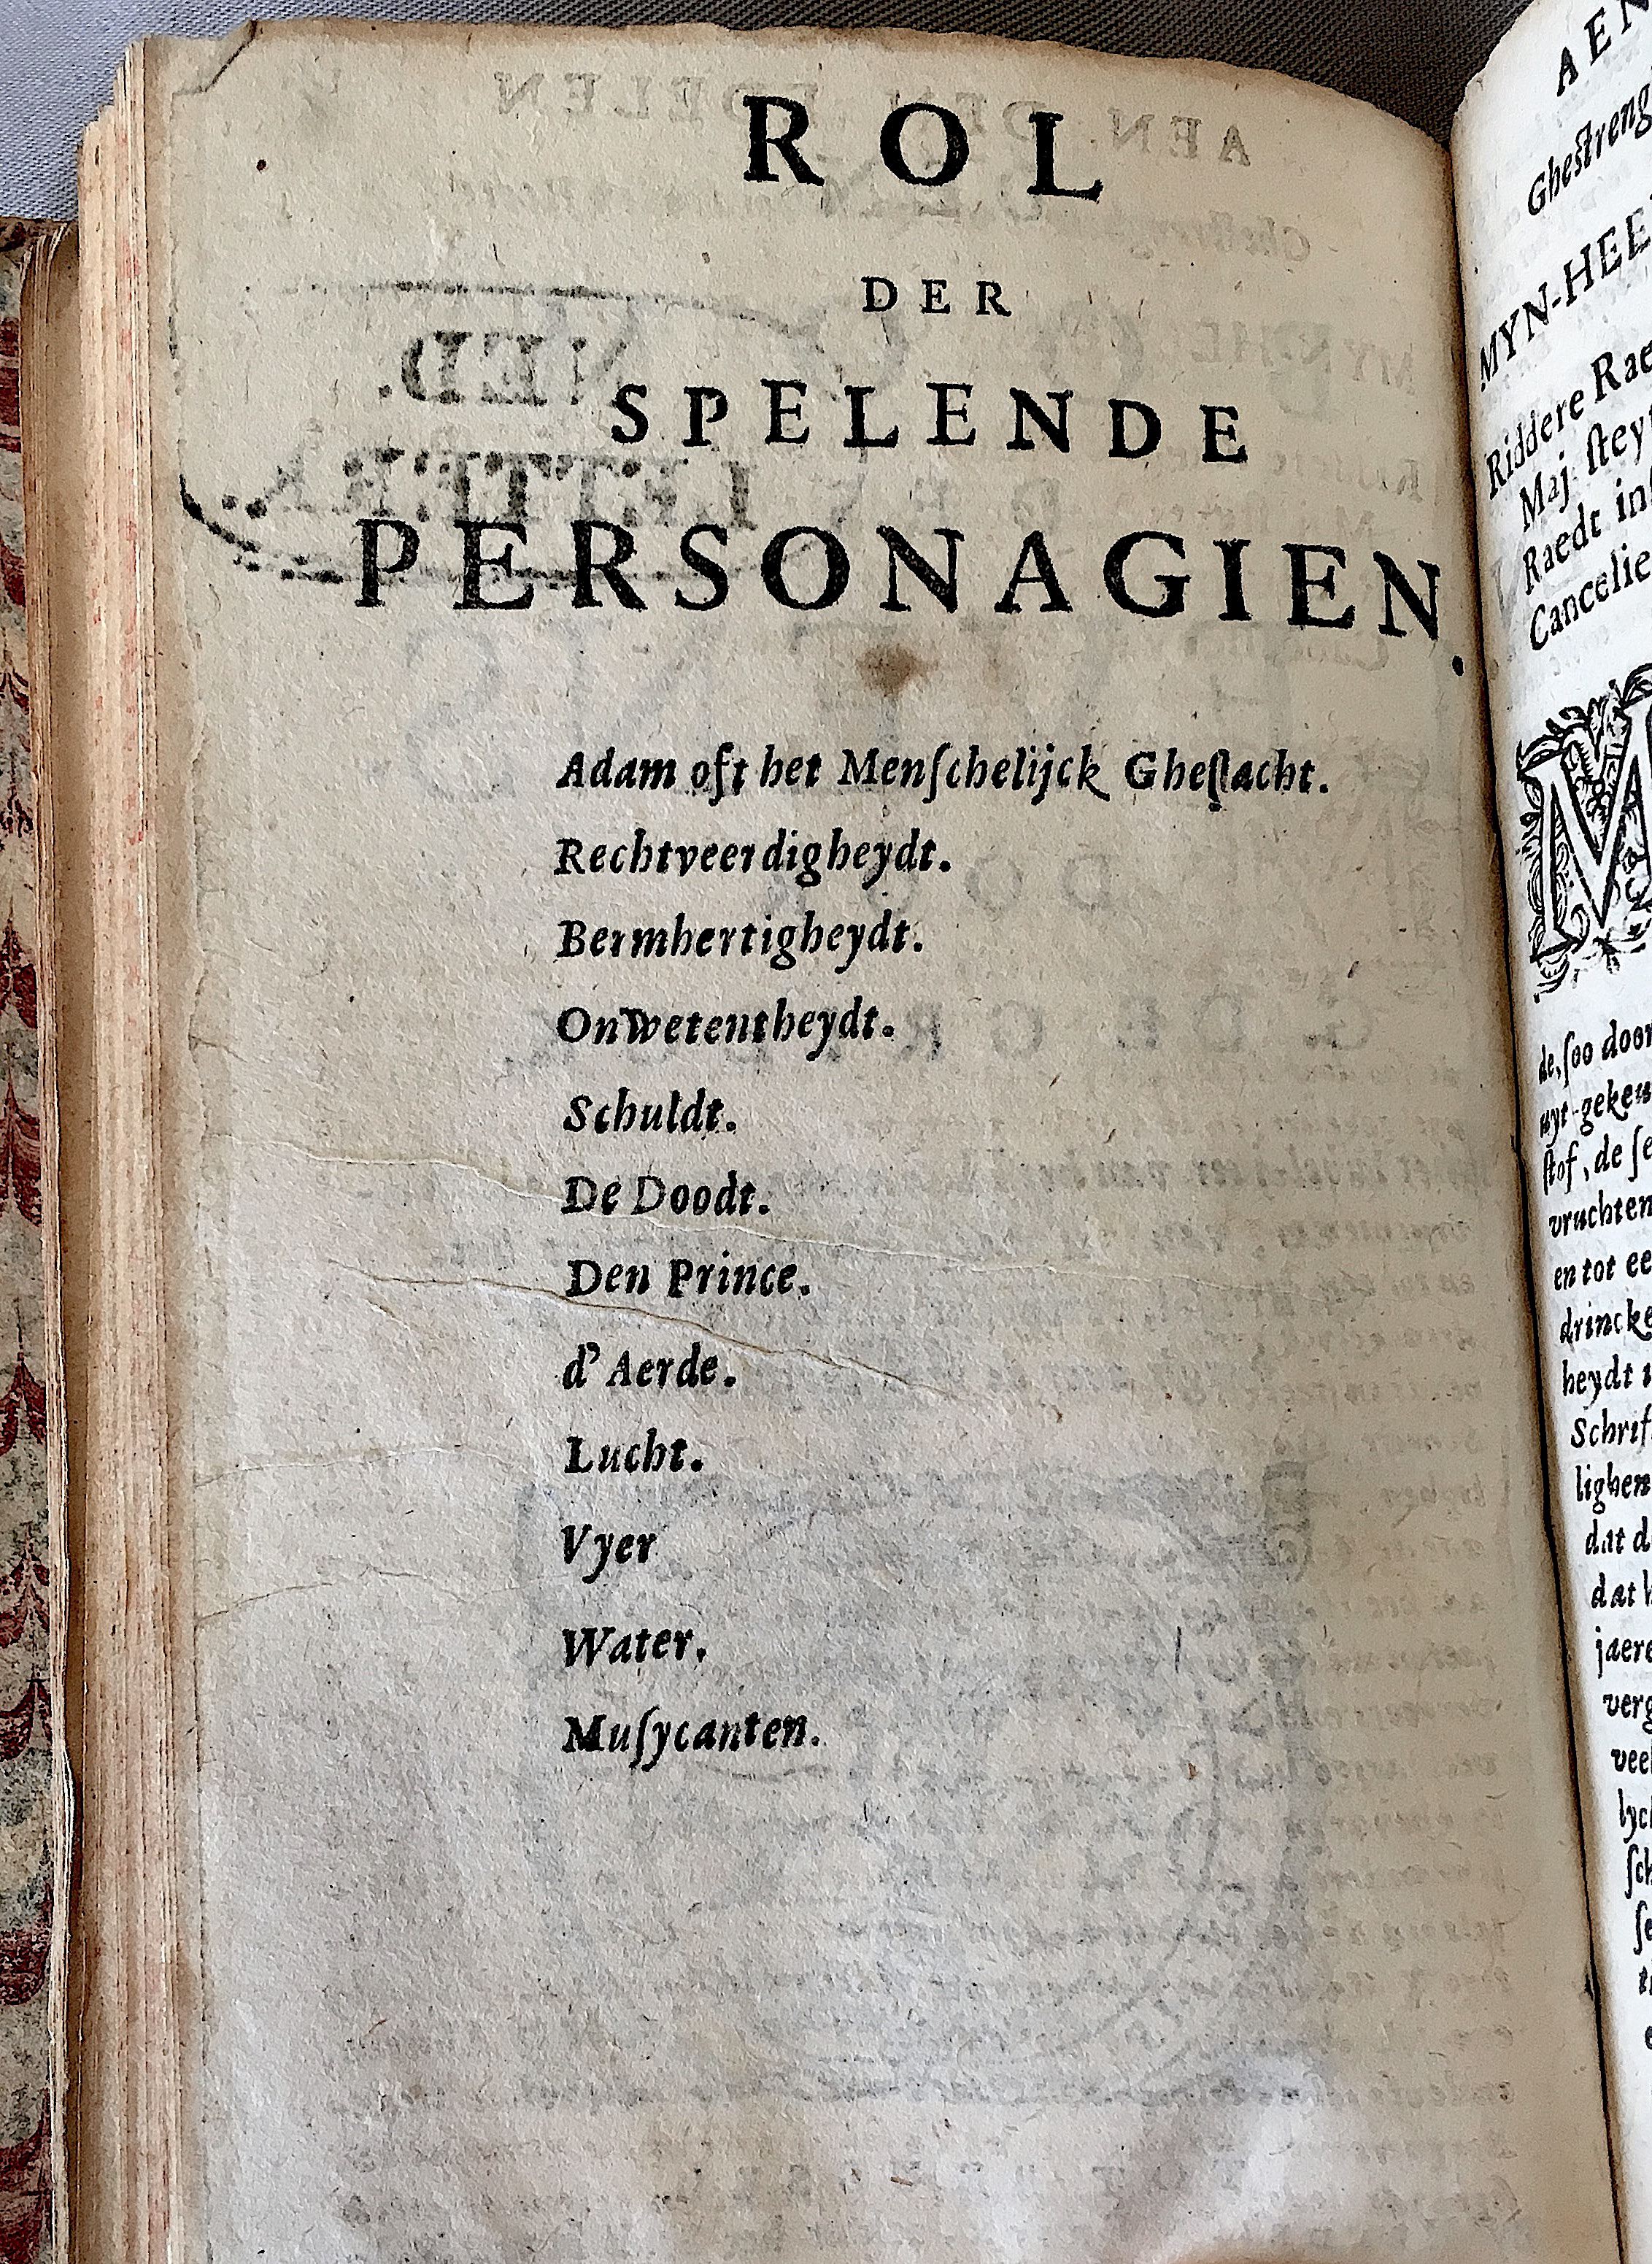 ROL
DER
SPELENDE
PERSONAGIEN.
Adam oft het Menſchelijck Gheſlacht.
Rechtveerdigheydt.
Bermhertigheydt.
Onwetentheydt.
Schuldt.
De Doodt.
Den Prince.
d'Aerde.
Lucht.
Vyer
Water.
Muſycanten.
AEN
Gheſtreng
MYN-HEE
Riddere Rae
Maj. ſtey
Raedt in
Cancelie
M
de, ſoo door
uyt-geken
ſtof, de ſe
vruchten
en tot ee
drincke
heydt
Schrif
lighen
dat d
dat h
jaere
verg
veel
lyc
ſch
ſe